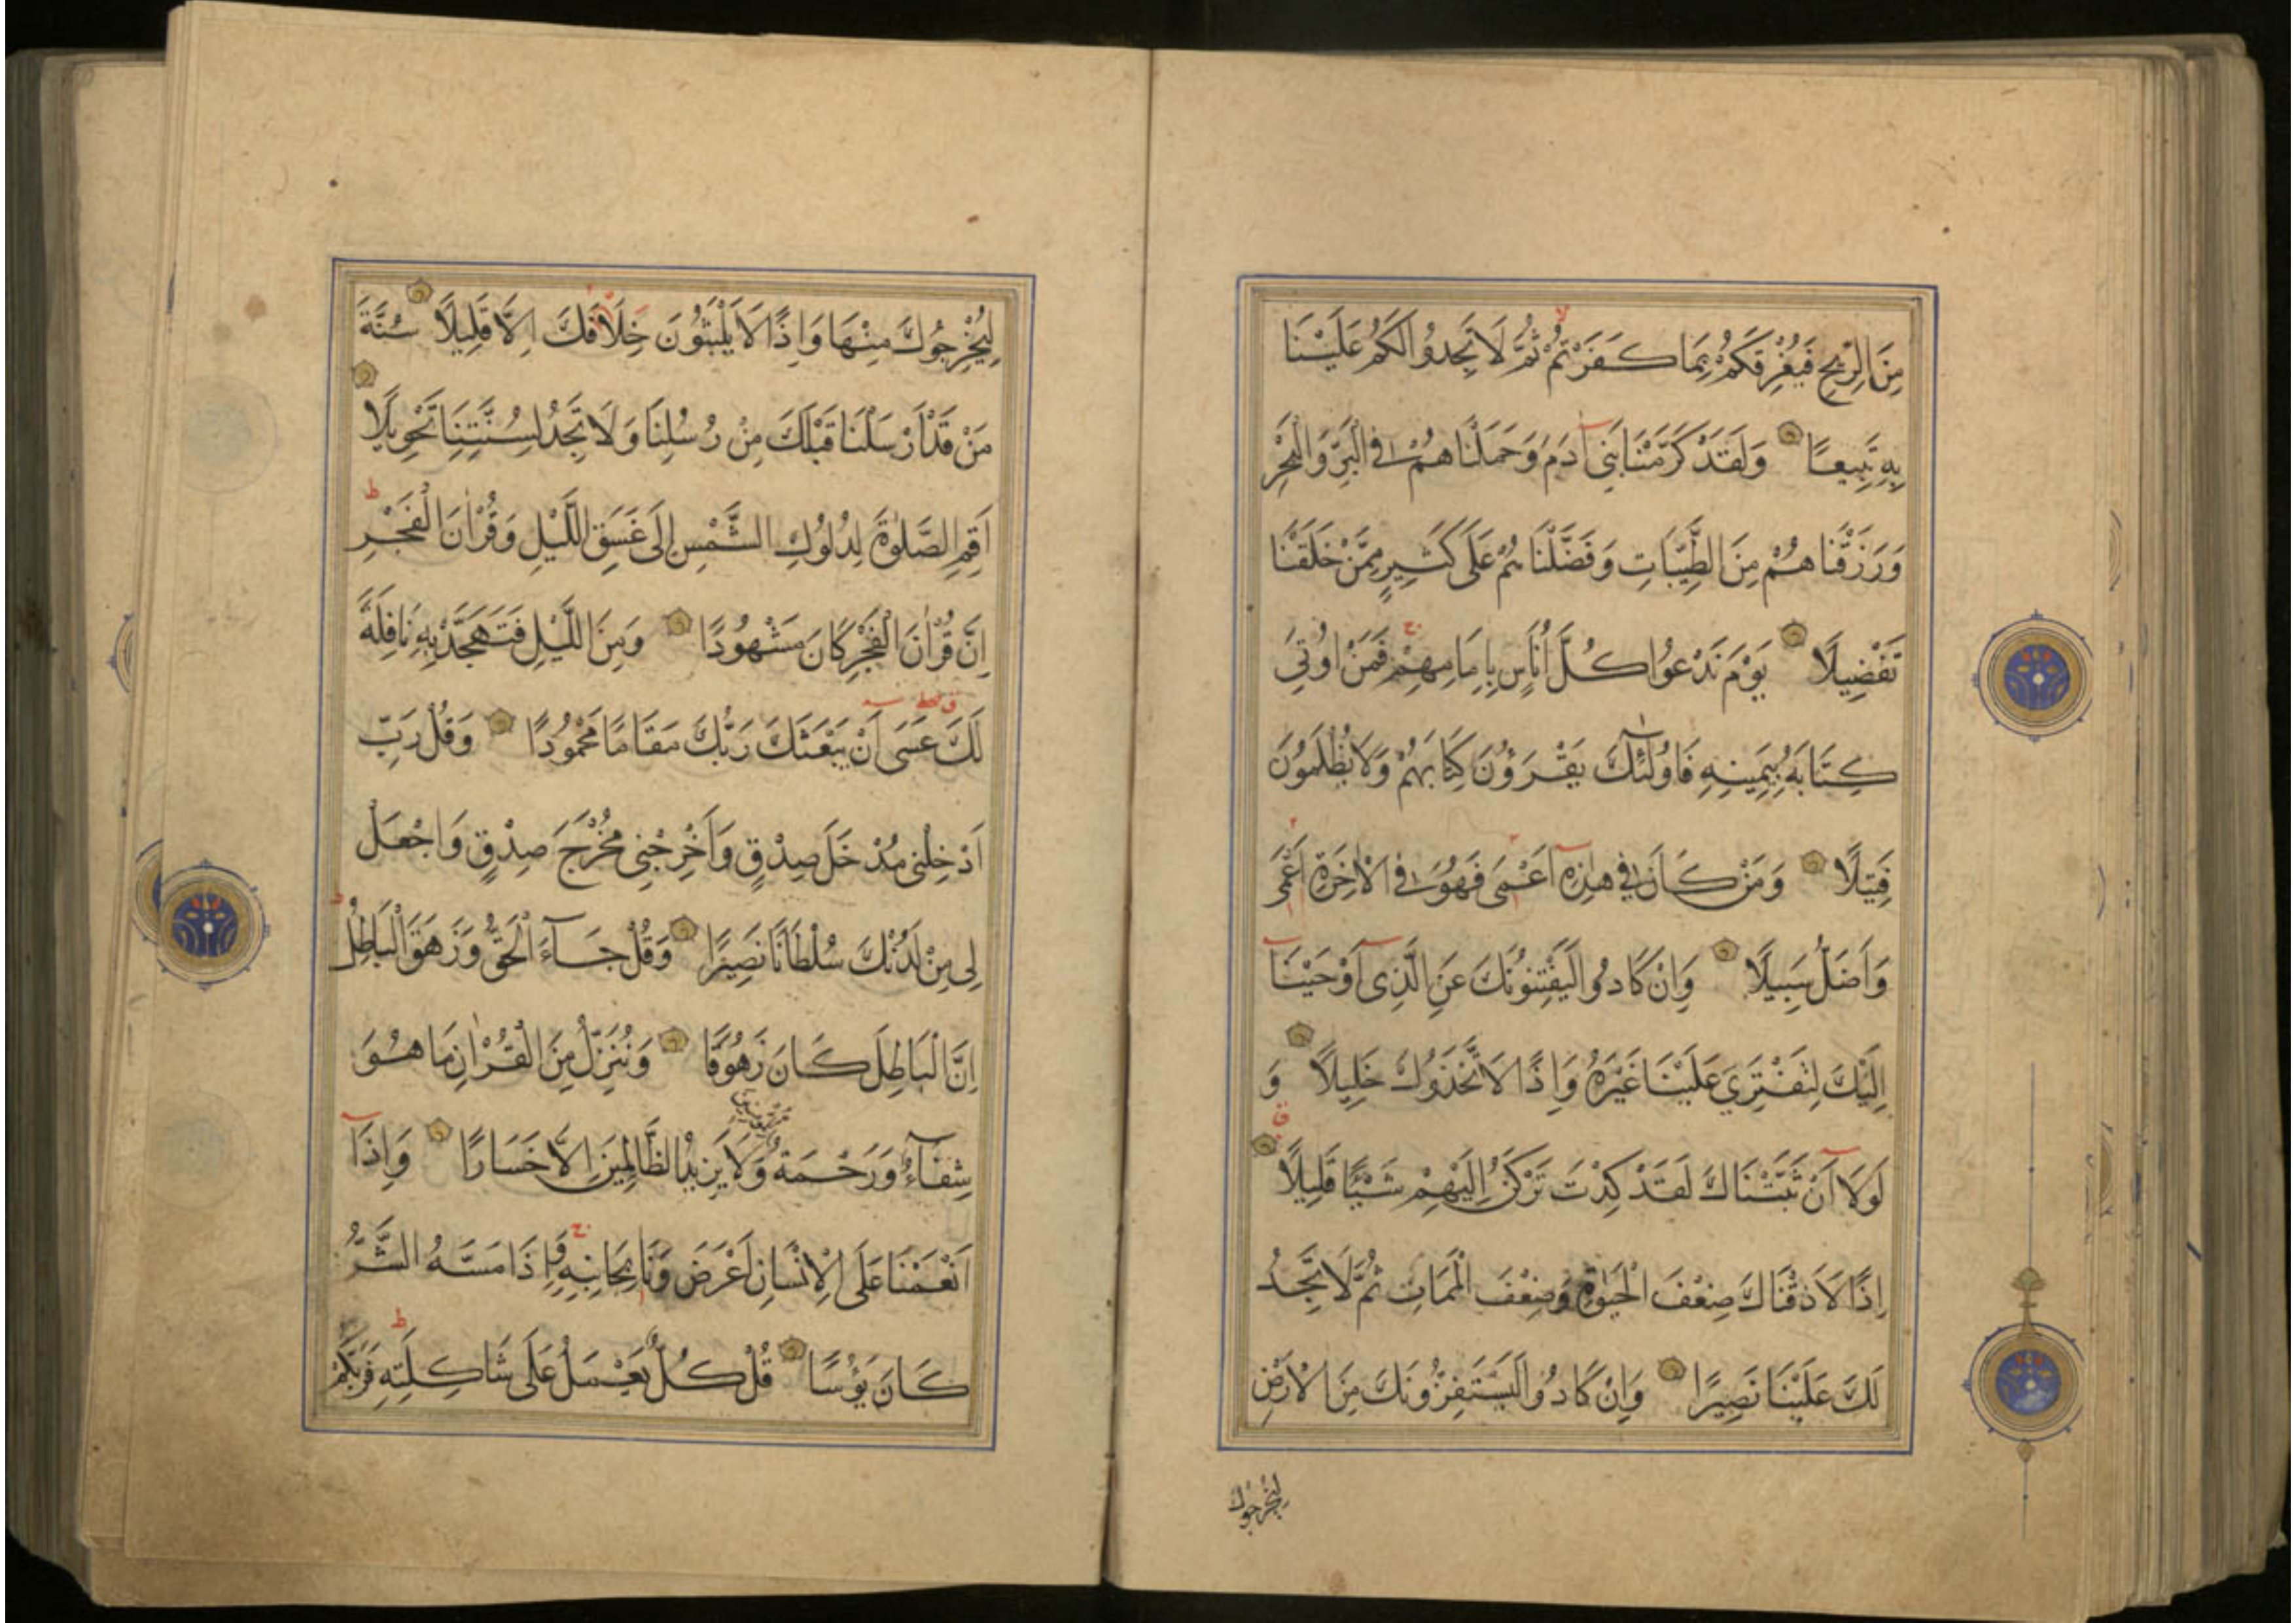 مِنَ الرِّيحِ فَيُغْرِقَكُمْ بِمَا كَفَرْتُمْ ثُمَّ لَا تَجِدُوا لَكُمْ عَلَيْنَا
بِهِ تَبِيعًا وَلَقَدْ كَرَّمْنَا بَنِي آدَمَ وَحَمَلْنَاهُمْ فِي الْبَرِّ وَالْبَحْرِ
وَرَزَقْنَاهُمْ مِنَ الطَّيِّبَاتِ وَفَضَّلْنَاهُمْ عَلَى كَثِيرٍ مِمَّنْ خَلَقْنَا
تَفْضِيلًا يَوْمَ نَدْعُوا كُلَّ أُنَاسٍ بِاِمَامِهِمْ فَمَنْ اُوتِيَ
كِتَابَهُ بِيَمِينِهِ فَاُولٰٓئِكَ يَقْرَؤُنَ كِتَابَهُمْ وَلَا يُظْلَمُونَ
فَتِيلًا وَمَنْ كَانَ فِي هٰذِهِ اَعْمَى فَهُوَ فِي الْاٰخِرَةِ اَعْمَى
وَاَضَلُّ سَبِيلًا وَاِنْ كَادُوا لَيَفْتِنُونَكَ عَنِ الَّذِي اَوْحَيْنَا
اِلَيْكَ لِتَفْتَرِيَ عَلَيْنَا غَيْرَهُ وَاِذًا لَاتَّخَذُوكَ خَلِيلًا وَ
لَوْلَا اَنْ ثَبَّتْنَاكَ لَقَدْ كِدْتَ تَرْكَنُ اِلَيْهِمْ شَيْئًا قَلِيلًا
اِذًا لَاَذَقْنَاكَ ضِعْفَ الْحَيٰوةِ وَضِعْفَ الْمَمَاتِ ثُمَّ لَا تَجِدُ
لَكَ عَلَيْنَا نَصِيرًا وَاِنْ كَادُوا لَيَسْتَفِزُّونَكَ مِنَ الْاَرْضِ
لِيُخْرِجُوكَ
لِيُخْرِجُوكَ مِنْهَا وَاِذًا لَا يَلْبَثُونَ خِلَافَكَ اِلَّا قَلِيلًا سُنَّةَ
مَنْ قَدْ اَرْسَلْنَا قَبْلَكَ مِنْ رُسُلِنَا وَلَا تَجِدُ لِسُنَّتِنَا تَحْوِيلًا
اَقِمِ الصَّلٰوةَ لِدُلُوكِ الشَّمْسِ اِلَى غَسَقِ اللَّيْلِ وَقُرْاٰنَ الْفَجْرِ
اِنَّ قُرْاٰنَ الْفَجْرِ كَانَ مَشْهُودًا وَمِنَ اللَّيْلِ فَتَهَجَّدْ بِهِ نَافِلَةً
لَكَ عَسَى اَنْ يَبْعَثَكَ رَبُّكَ مَقَامًا مَحْمُودًا وَقُلْ رَبِّ
اَدْخِلْنِي مُدْخَلَ صِدْقٍ وَاَخْرِجْنِي مُخْرَجَ صِدْقٍ وَاجْعَلْ
لِي مِنْ لَدُنْكَ سُلْطَانًا نَصِيرًا وَقُلْ جَآءَ الْحَقُّ وَزَهَقَ الْبَاطِلُ
اِنَّ الْبَاطِلَ كَانَ زَهُوقًا وَنُنَزِّلُ مِنَ الْقُرْاٰنِ مَا هُوَ
شِفَآءٌ وَرَحْمَةٌ لِلْمُؤْمِنِينَ وَلَا يَزِيدُ الظَّالِمِينَ اِلَّا خَسَارًا وَاِذَا
اَنْعَمْنَا عَلَى الْاِنْسَانِ اَعْرَضَ وَنَاٰ بِجَانِبِهِ وَاِذَا مَسَّهُ الشَّرُّ
كَانَ يَؤُسًا قُلْ كُلٌّ يَعْمَلُ عَلَى شَاكِلَتِهِ فَرَبُّكُمْ